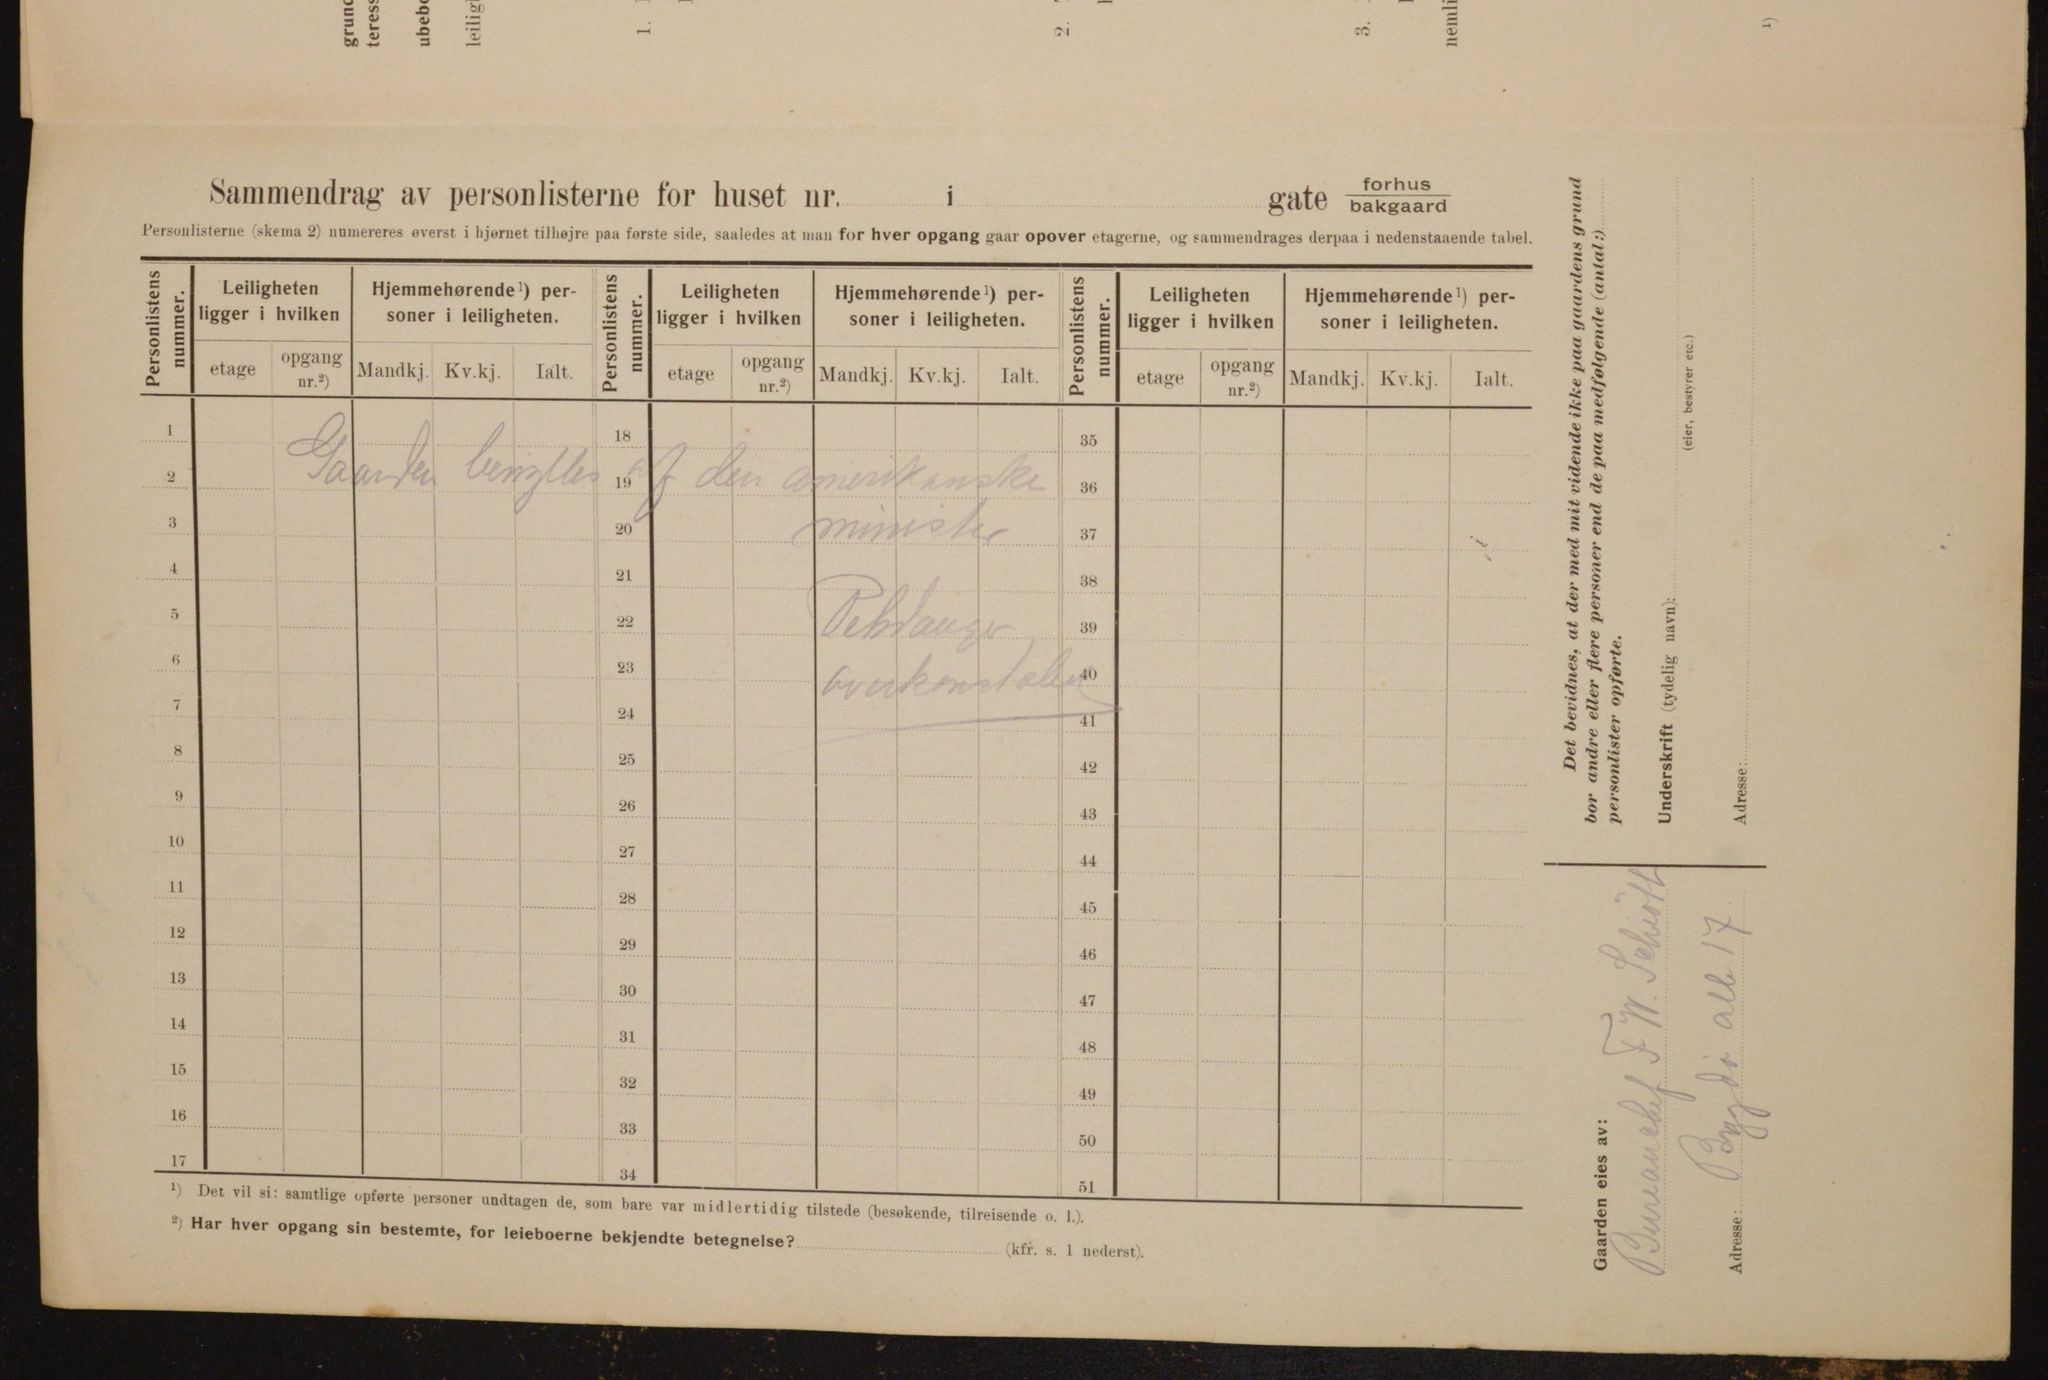 grund
teress
ubebo
leilig
1.
2.
3.
nemli
¹)
Sammendrag av personlisterne for huset nr. i gate forhus
bakgaard
Personlisterne (skema 2) numereres øverst i hjørnet tilhøjre paa første side, saaledes at man for hver opgang gaar opover etagerne, og sammendrages derpaa i nedenstaaende tabel.
Personlistens nummer. Leiligheten ligger i hvilken Hjemmehørende¹) personer i leiligheten. Personlistens nummer. Leiligheten ligger i hvilken Hjemmehørende¹) personer i leiligheten. Personlistens nummer. Leiligheten ligger i hvilken Hjemmehørende¹) personer i leiligheten.
etage opgang nr.²) Mandkj. Kv.kj. Ialt. etage opgang nr.²) Mandkj. Kv.kj. Ialt. etage opgang nr.²) Mandkj. Kv.kj. Ialt.
1 18 35
Gaarden benyttes af den amerikanske
2 19 36
minister
3 20 37
4 21 38
5 22 39
6 23 40
overkonstabel
7 24 41
8 25 42
9 26 43
10 27 44
11 28 45
12 29 46
13 30 47
14 31 48
15 32 49
16 33 50
17 34 51
¹) Det vil si: samtlige opførte personer undtagen de, som bare var midlertidig tilstede (besøkende, tilreisende o. l.).
²) Har hver opgang sin bestemte, for leieboerne bekjendte betegnelse? (kfr. s. 1 nederst).
Det bevidnes, at der med mit vidende ikke paa gaardens grund
bor andre eller flere personer end de paa medfølgende (antal:)
personlister opførte.
Underskrift (tydelig navn):
(eier, bestyrer etc.)
Adresse:
Gaarden eies av:
Bureauchef F. W. Schiøtt
Adresse: Bygdø alle 17.